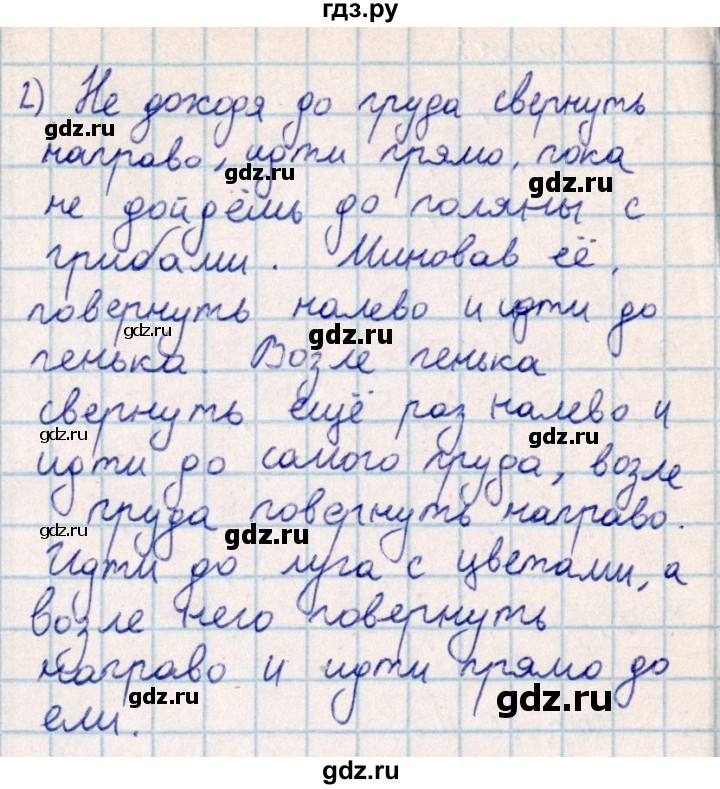 гдз.ру
2) Не доходя до пруда свернуть
gdz.ru
направо, идти прямо, пока
gdz.ru gdz.ru
не дойдёшь до поляны с
грибами. Миновав её,
повернуть налево и идти до
gdz.ru gdz.ru
пенька. Возле пенька
свернуть ещё раз налево и
gdz.ru gdz.ru
идти до самого пруда, возле
пруда повернуть направо.
gdz.ru gdz.ru
Идти до луга с цветами, а
возле него повернуть
направо и идти прямо до
gdz.ru gdz.ru
ели.
gdz.ru